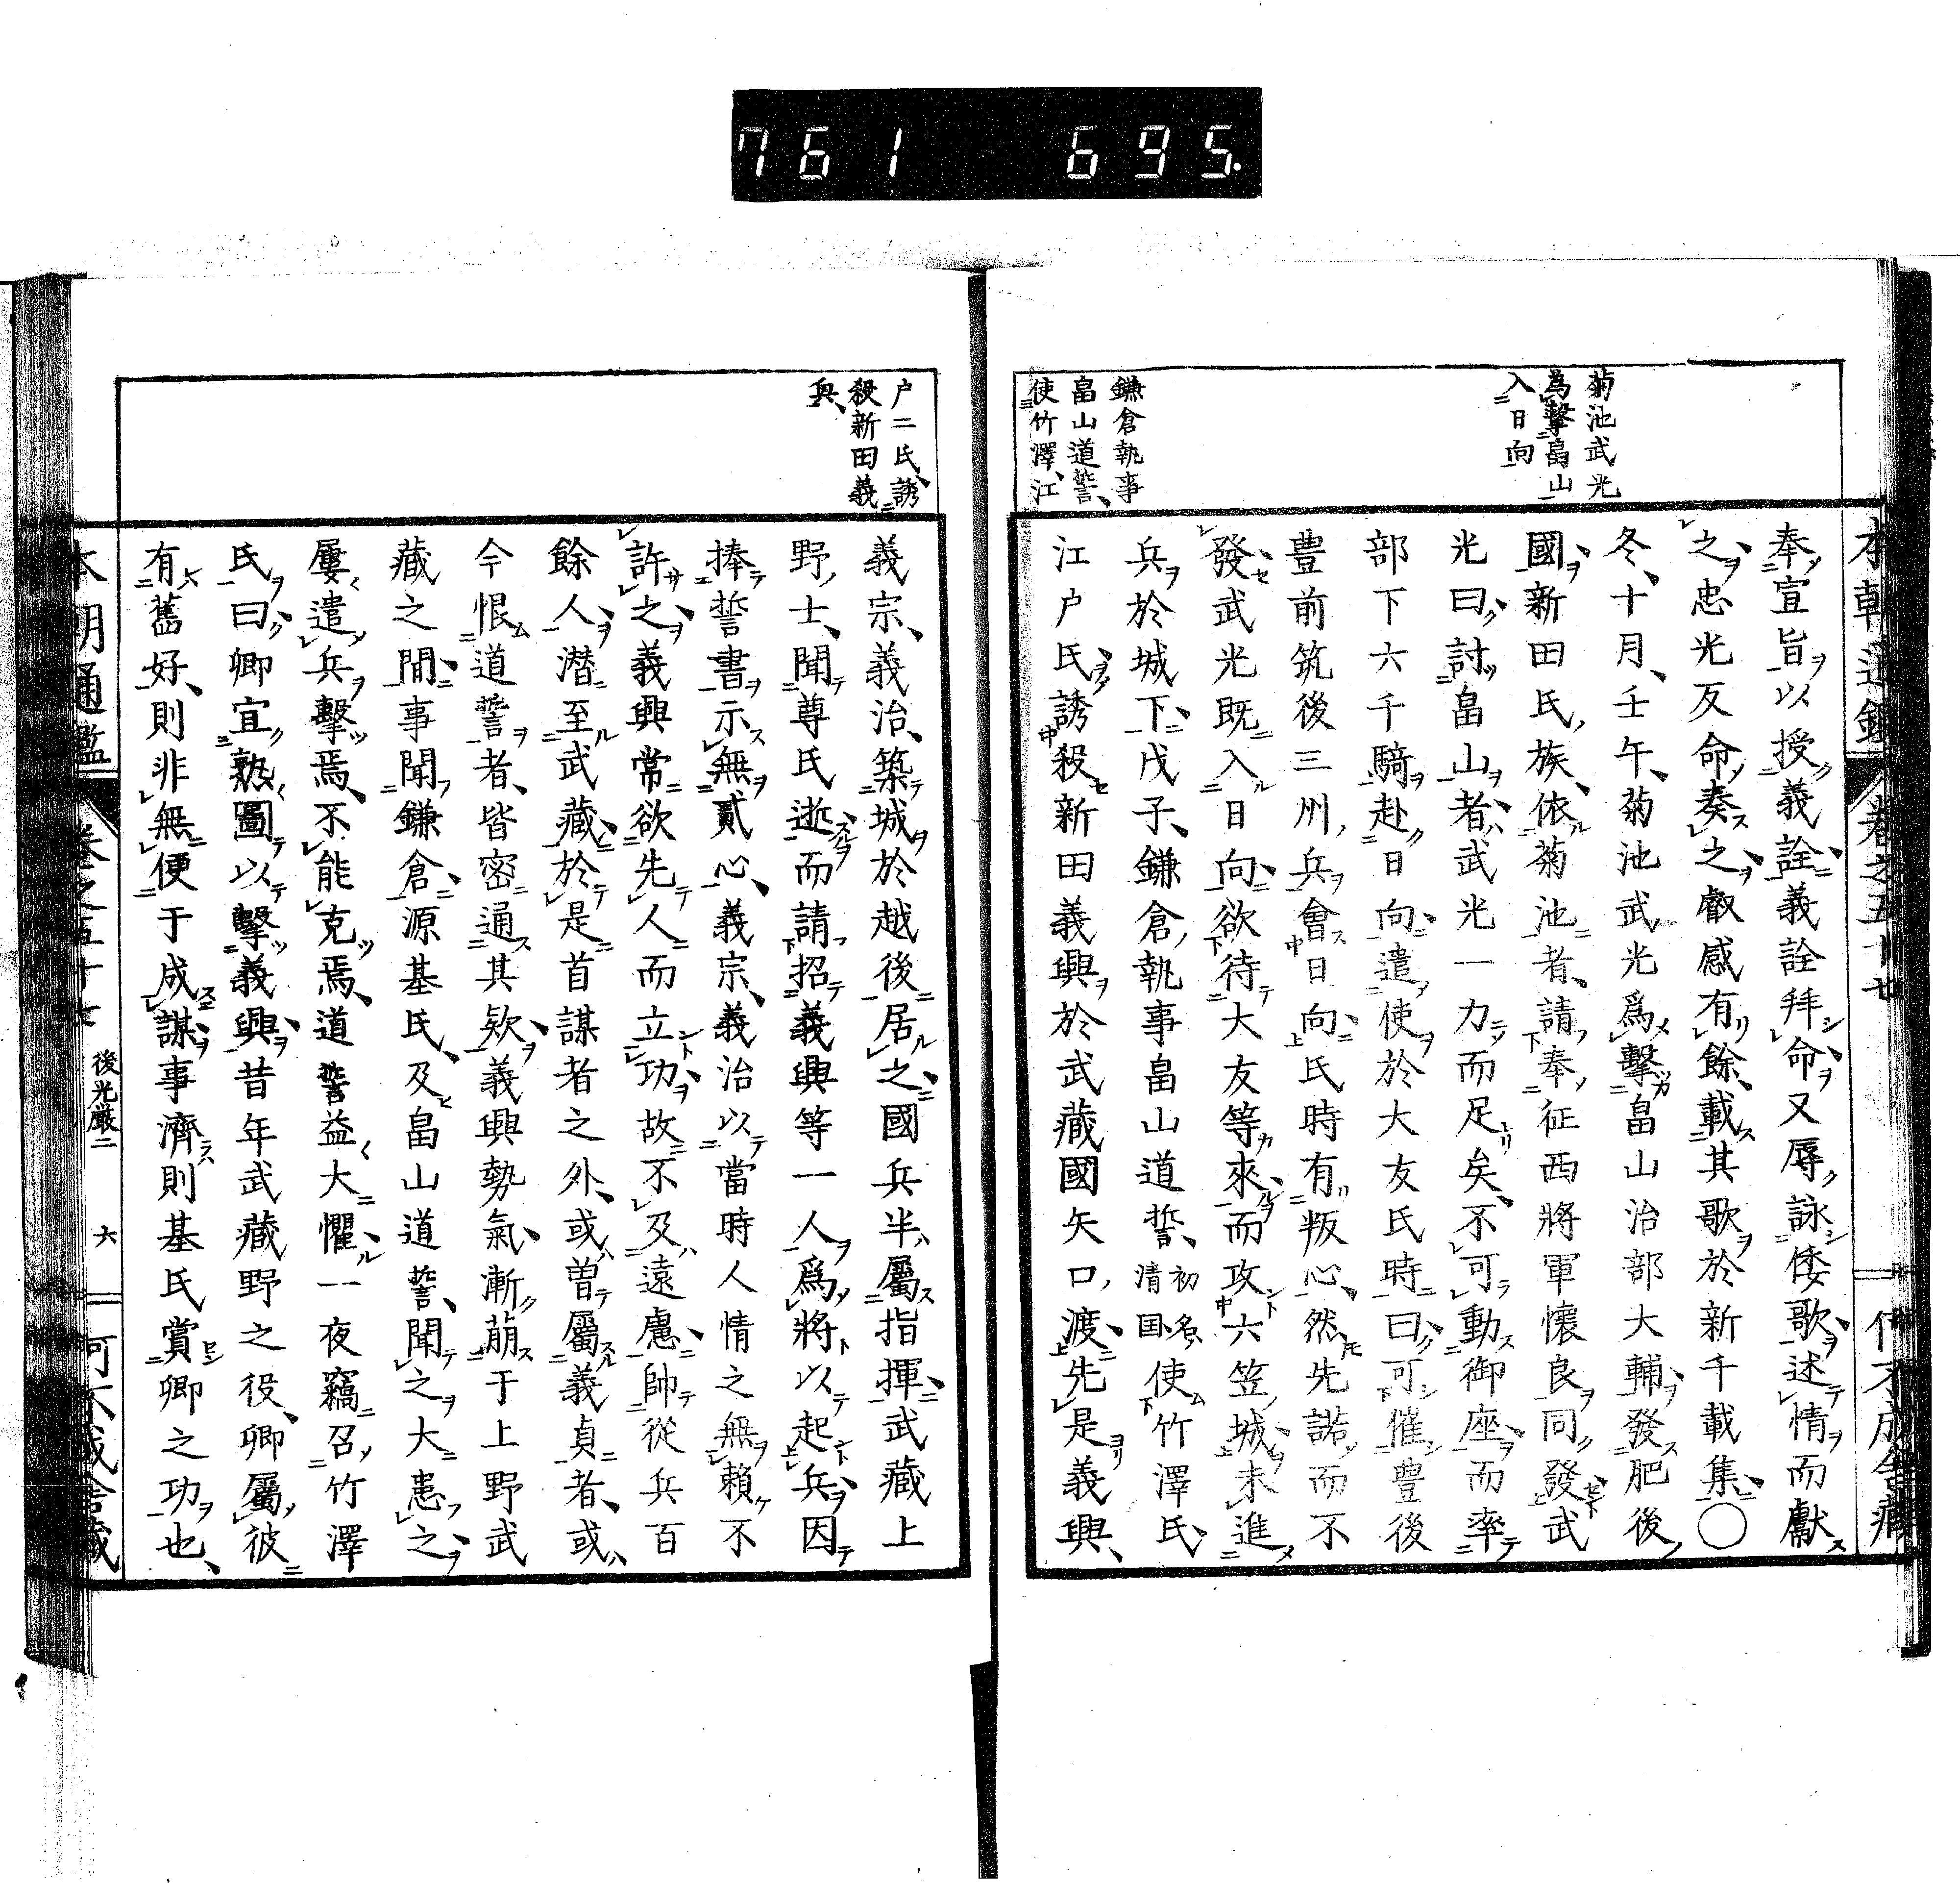 761 695.
本朝通鑑 卷之五十七
菊池武光
為擊畠山
入日向
鎌倉執事
畠山道誓、
使竹澤、江
奉宣旨以授義詮義詮拜命又辱詠倭歌述情而獻
之忠光反命奏之叡感有餘、載其歌於新千載集〇
冬、十月、壬午、菊池武光爲擊畠山治部大輔發肥後、
國新田氏族依菊池者、請奉征西將軍懷良同發武
光曰討畠山者武光一力而足矣不可動御座而率
部下六千騎赴日向遣使於大友氏時曰可催豊後
豊前筑後三州兵會日向氏時有叛心然先諾而不
發武光既入日向欲待大友等來而攻六笠城未進
兵於城下戊子、鎌倉執事畠山道誓、初名清国使竹澤氏
江户氏誘殺新田義興於武藏國矢口渡先是義興、
户二氏誘
殺新田義
興、
義宗、義治、築城於越後居之國兵半屬指揮武藏上
野士、聞尊氏逝而請招義興等一人爲將以起兵因
捧誓書示無貳心、義宗、義治以當時人情之無賴不
許之義興常欲先人而立功故不及遠慮帥從兵百
餘人潜至武藏於是首謀者之外、或曽屬義貞者、或
今恨道誓者、皆密通其欵義興勢氣漸萠于上野武
藏之間事聞鎌倉源基氏、及畠山道誓、聞之大恚之
屢遣兵擊焉、不能克焉、道誓益大懼一夜竊召竹澤
氏曰卿宜熟圖以擊義興昔年武藏野之役、卿屬彼
有舊好、則非無便于成謀事濟則基氏賞卿之功也、
本朝通鑑 卷之五十七 後光嚴二 六